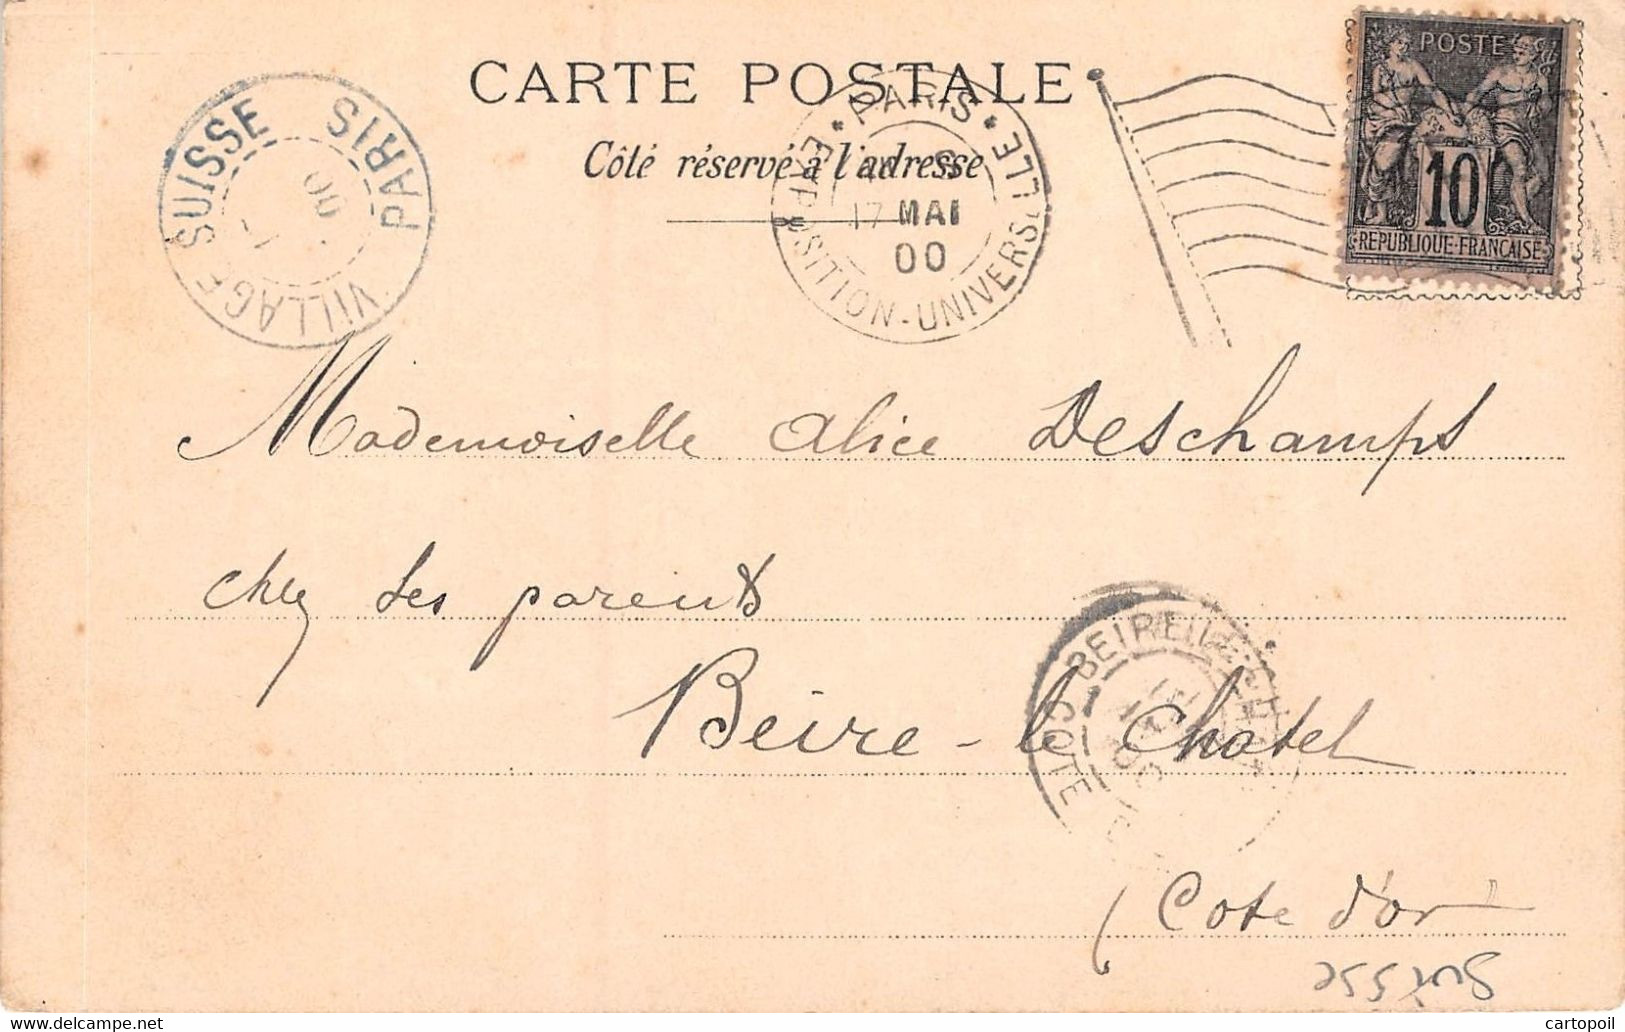 CARTE POSTALE
Côté réservé à l'adresse
VILLAGE SUISSE PARIS
00
* PARIS * EXPOSITION-UNIVERSELLE
17 MAI
00
POSTE
10
REPUBLIQUE FRANCAISE
Mademoiselle Alice Deschamps
chez ses parents
Beire-le Chatel
BEIRE-LE-CHAT
COTE D
00
(Cote d'or
Suisse
cartopoil